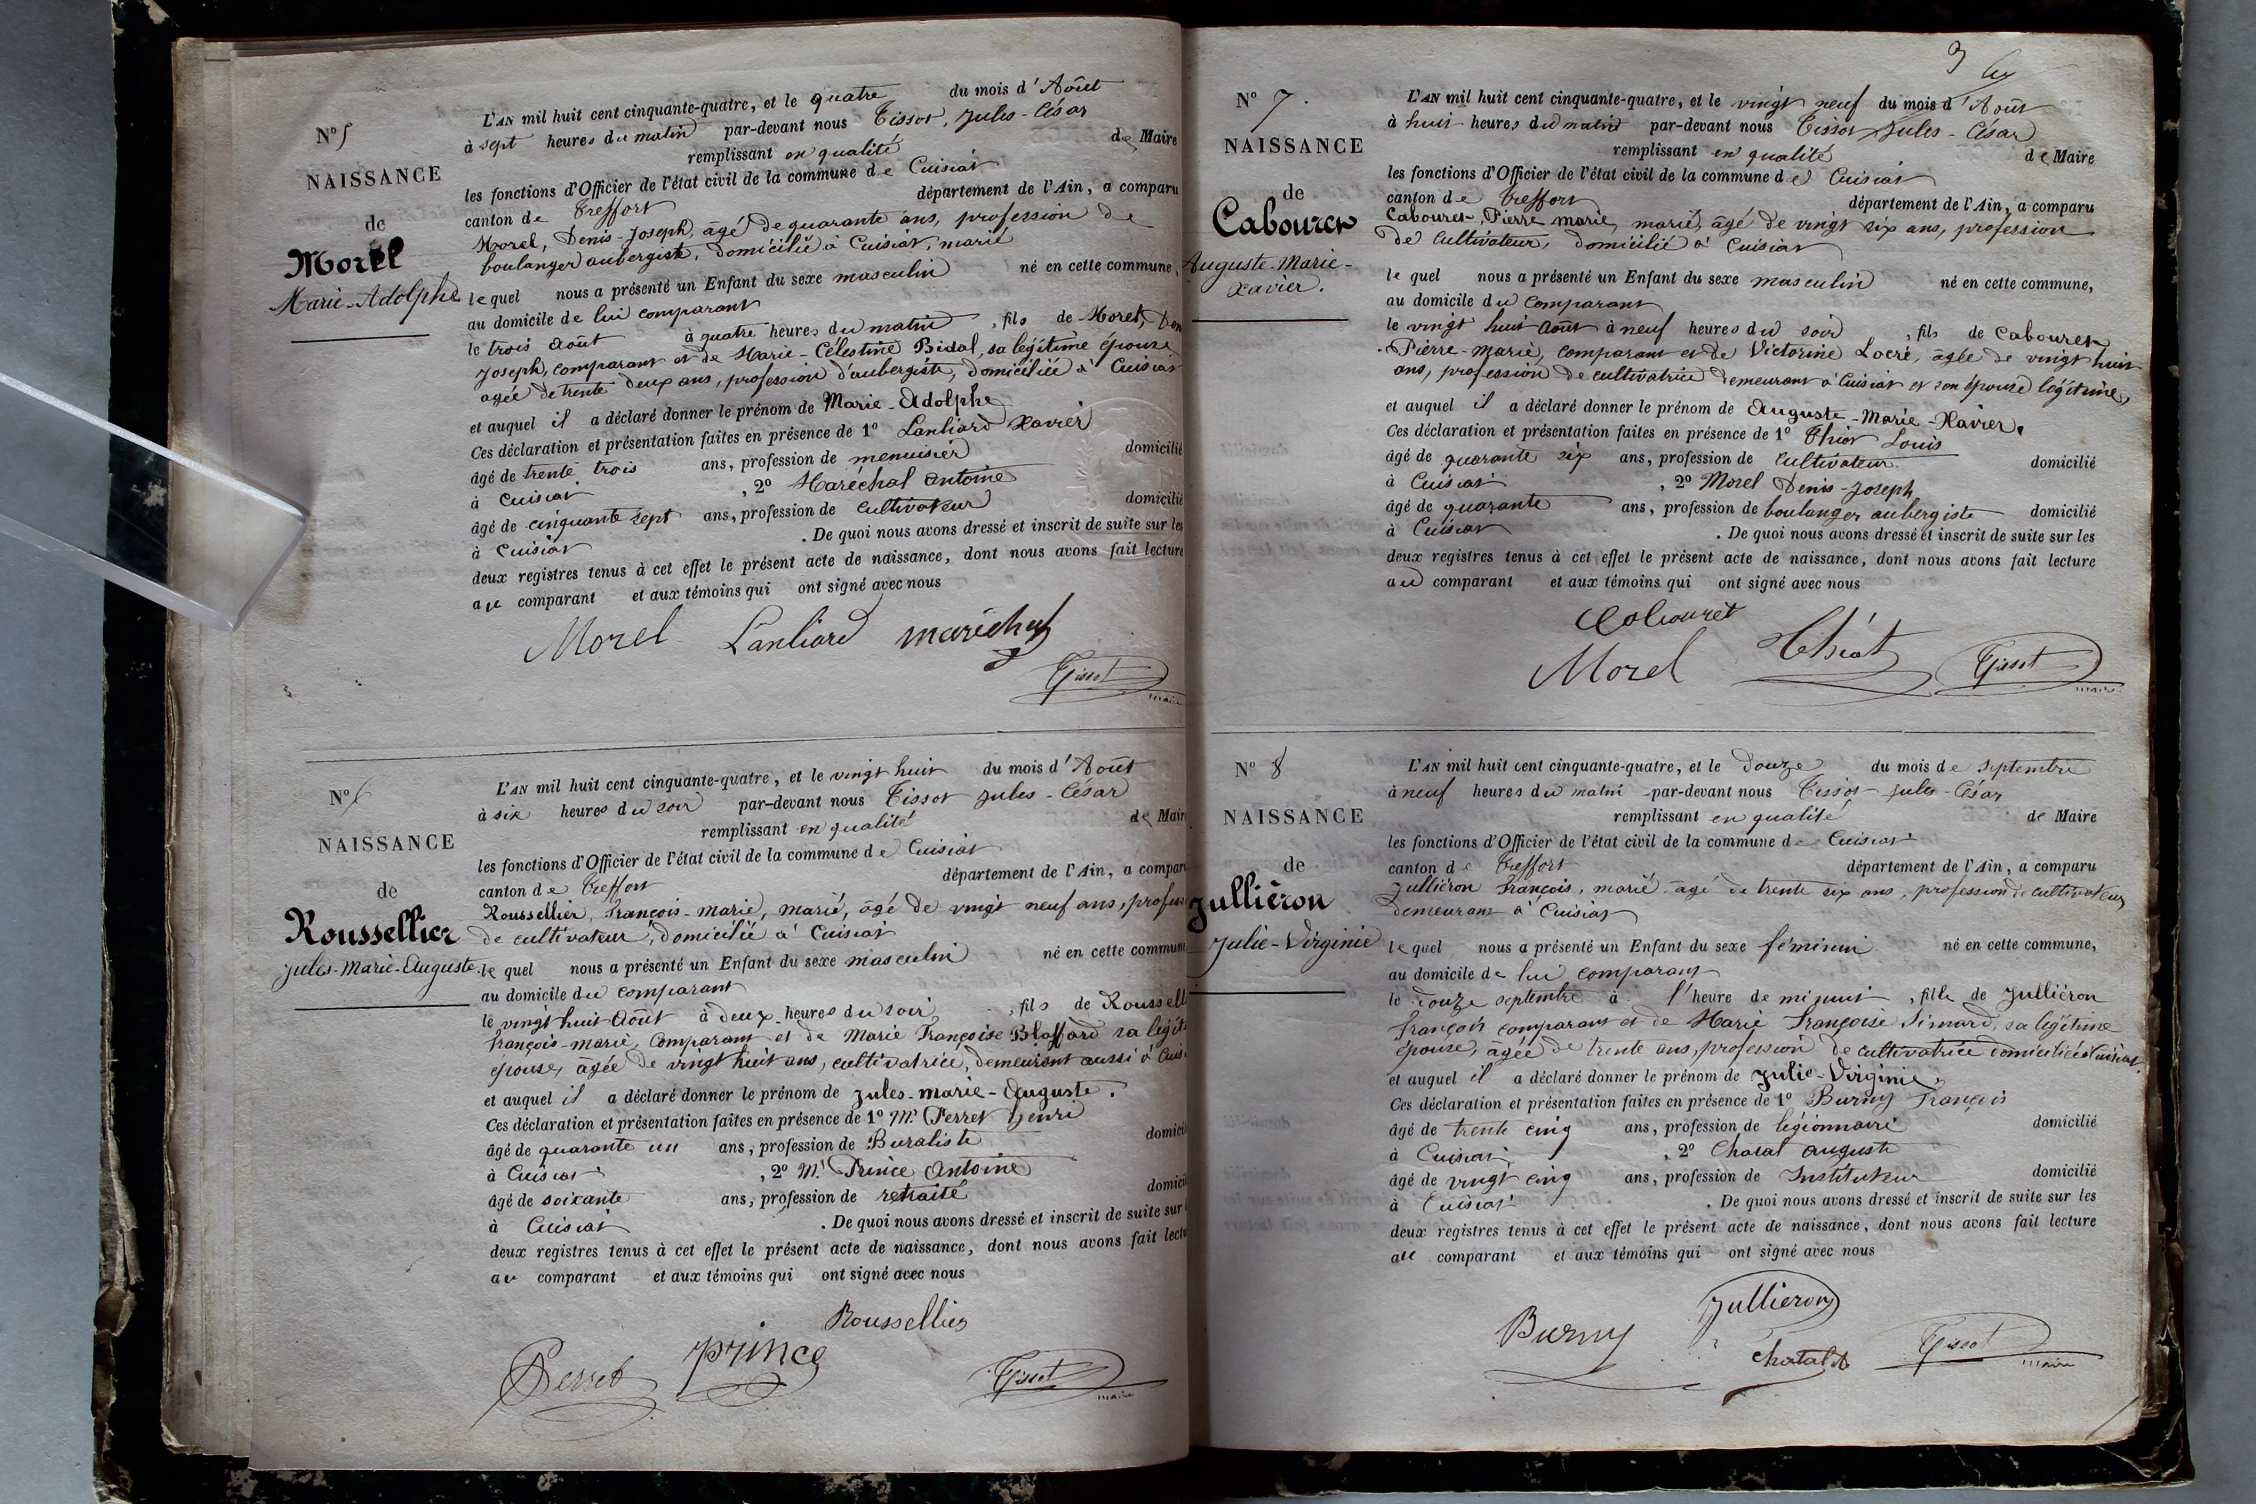 N° 5
NAISSANCE
de
Morel
Marie-Adolphe
L'AN mil huit cent cinquante-quatre, et le quatre du mois d'Août
à sept heures du matin par-devant nous Tissot, Jules-César
remplissant en qualité de Maire
les fonctions d'Officier de l'état civil de la commune de Cuisiat
canton de Treffort département de l'Ain, a comparu
Morel, Denis-Joseph, âgé de quarante ans, profession de
boulanger aubergiste, domicilié à Cuisiat, marié
lequel nous a présenté un Enfant du sexe masculin né en cette commune,
au domicile de lui comparant
le trois Août à quatre heures du matin, fils de Morel, Den
Joseph, comparant et de Marie-Célestine Bidal, sa légitime épouse
agée de trente deux ans, profession d'aubergiste, domiciliée à Cuisiat
et auquel il a déclaré donner le prénom de Marie-Adolphe
Ces déclaration et présentation faites en présence de 1° Lanliard Xavier
âgé de trente trois ans, profession de menuisier domicilié
à Cuisiat, 2° Maréchal Antoine
âgé de cinquante sept ans, profession de cultivateur domicilié
à Cuisiat. De quoi nous avons dressé et inscrit de suite sur les
deux registres tenus à cet effet le présent acte de naissance, dont nous avons fait lecture
au comparant et aux témoins qui ont signé avec nous
Morel Lanliard maréchal
Tissot
maire
N° 6
NAISSANCE
de
Roussellier
Jules-Marie-Auguste
L'AN mil huit cent cinquante-quatre, et le vingt huit du mois d'Août
à six heures du soir par-devant nous Tissot Jules-César
remplissant en qualité de Mair
les fonctions d'Officier de l'état civil de la commune de Cuisiat
canton de Treffort département de l'Ain, a compar
Roussellier, François-marie, marié, âgé de vingt neuf ans, profess
de cultivateur, domicilié à Cuisiat
lequel nous a présenté un Enfant du sexe masculin né en cette commune
au domicile du comparant
le vingt huit Août à deux heures du soir, fils de Roussell
François-marie, comparant et de Marie Françoise Blaffard sa légit
épouse, âgée de vingt huit ans, cultivatrice, demeurant aussi à Cuis
et auquel il a déclaré donner le prénom de Jules-marie-Auguste.
Ces déclaration et présentation faites en présence de 1° Mr Perret henri
âgé de quarante un ans, profession de Buraliste domicil
à Cuisiat, 2° Mr Prince Antoine
âgé de soixante ans, profession de retraité domicil
à Cuisiat. De quoi nous avons dressé et inscrit de suite sur l
deux registres tenus à cet effet le présent acte de naissance, dont nous avons fait lectu
au comparant et aux témoins qui ont signé avec nous
Roussellier
Perret prince
Tissot
maire
3
N° 7.
NAISSANCE
de
Cabouret
Auguste-Marie-
Xavier.
L'AN mil huit cent cinquante-quatre, et le vingt neuf du mois d'Août
à huit heures du matin par-devant nous Tissot Jules-César
remplissant en qualité de Maire
les fonctions d'Officier de l'état civil de la commune de Cuisiat
canton de Treffort département de l'Ain, a comparu
Cabouret, Pierre marie, marié, âgé de vingt six ans, profession
de cultivateur, domicilié à Cuisiat
lequel nous a présenté un Enfant du sexe masculin né en cette commune,
au domicile du comparant
le vingt huit Août à neuf heures du soir, fils de Cabouret
Pierre-marie, comparant et de Victorine Locré, âgée de vingt huit
ans, profession de cultivatrice demeurant à Cuisiat et son épouse légitime,
et auquel il a déclaré donner le prénom de Auguste-Marie-Xavier.
Ces déclaration et présentation faites en présence de 1° Thiot Louis
âgé de quarante six ans, profession de cultivateur domicilié
à Cuisiat, 2° Morel Denis-Joseph
âgé de quarante ans, profession de boulanger aubergiste domicilié
à Cuisiat. De quoi nous avons dressé et inscrit de suite sur les
deux registres tenus à cet effet le présent acte de naissance, dont nous avons fait lecture
au comparant et aux témoins qui ont signé avec nous
Cabouret
Morel Thiot Tissot
maire
N° 8
NAISSANCE
de
Julliéron
Julie-Virginie
L'AN mil huit cent cinquante-quatre, et le douze du mois de septembre
à neuf heures du matin par-devant nous Tissot Jules-César
remplissant en qualité de Maire
les fonctions d'Officier de l'état civil de la commune de Cuisiat
canton de Treffort département de l'Ain, a comparu
Julliéron François, marié âgé de trente six ans, profession de cultivateur
demeurant à Cuisiat
lequel nous a présenté un Enfant du sexe féminin né en cette commune,
au domicile de lui comparant
le douze septembre à l'heure de minuit, fille de Julliéron
François comparant et de Marie Françoise Simard, sa légitime
épouse, âgée de trente ans, profession de cultivatrice domiciliée à Cuisiat
et auquel il a déclaré donner le prénom de Julie-Virginie.
Ces déclaration et présentation faites en présence de 1° Burny François
âgé de trente cinq ans, profession de légionnaire domicilié
à Cuisiat, 2° Chatal auguste
âgé de vingt cinq ans, profession de Instituteur domicilié
à Cuisiat. De quoi nous avons dressé et inscrit de suite sur les
deux registres tenus à cet effet le présent acte de naissance, dont nous avons fait lecture
au comparant et aux témoins qui ont signé avec nous
Jullieron
Burny Chatal A Tissot
maire